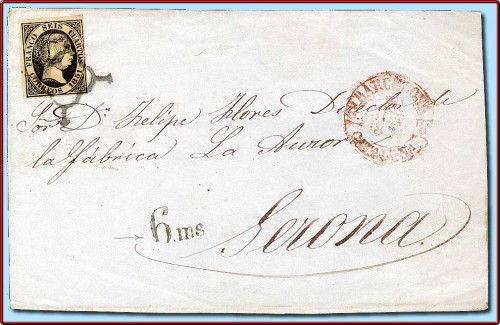 FRANCO SEIS CUARTOS
CORREOS 1851
Sor. Dn. Felipe Flores Director de
la fábrica La Aurora
6 ms
Gerona.
BARCELONA
CATALUÑA